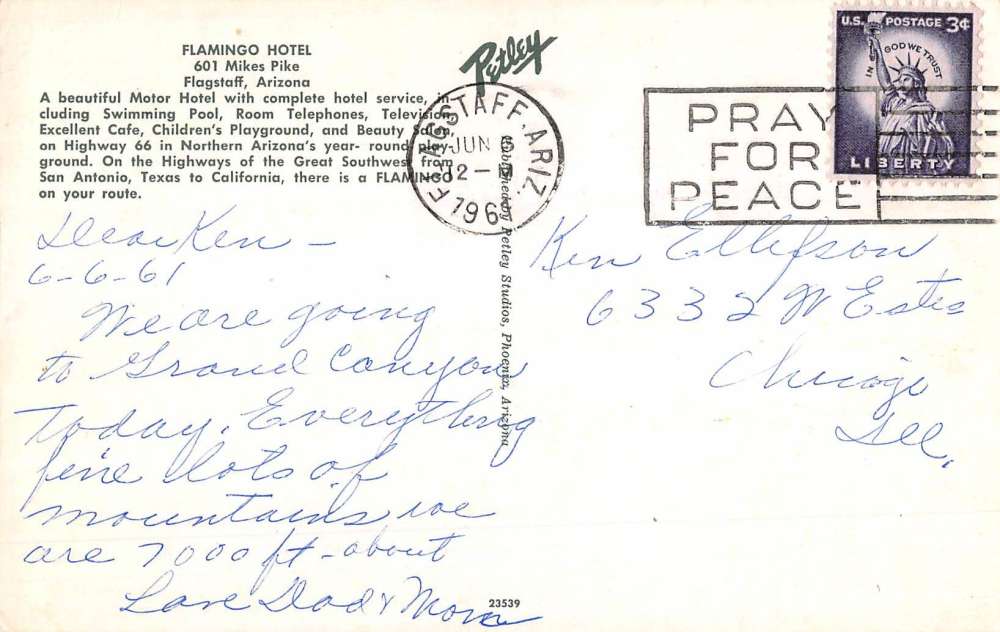 FLAMINGO HOTEL
601 Mikes Pike
Flagstaff, Arizona
A beautiful Motor Hotel with complete hotel service, in-
cluding Swimming Pool, Room Telephones, Television
Excellent Cafe, Children's Playground, and Beauty
on Highway 66 in Northern Arizona's year- round play-
ground. On the Highways of the Great Southwest from
San Antonio, Texas to California, there is a FLAMINGO
on your route.
Petley
FLAGSTAFF. ARIZ.
JUN 6
12 - M
196
PRAY
FOR
PEACE
U.S. POSTAGE 3¢
IN GOD WE TRUST
LIBERTY
Dear Ken -
6-6-61
We are going
to Grand Canyon
Today. Everything
fine lots of
mountains we
are 7000 ft - about
Love Dad & Mom
Published by Petley Studios, Phoenix, Arizona
Ken Ellefson
6332 W Estes
Chicago
Ill.
23539